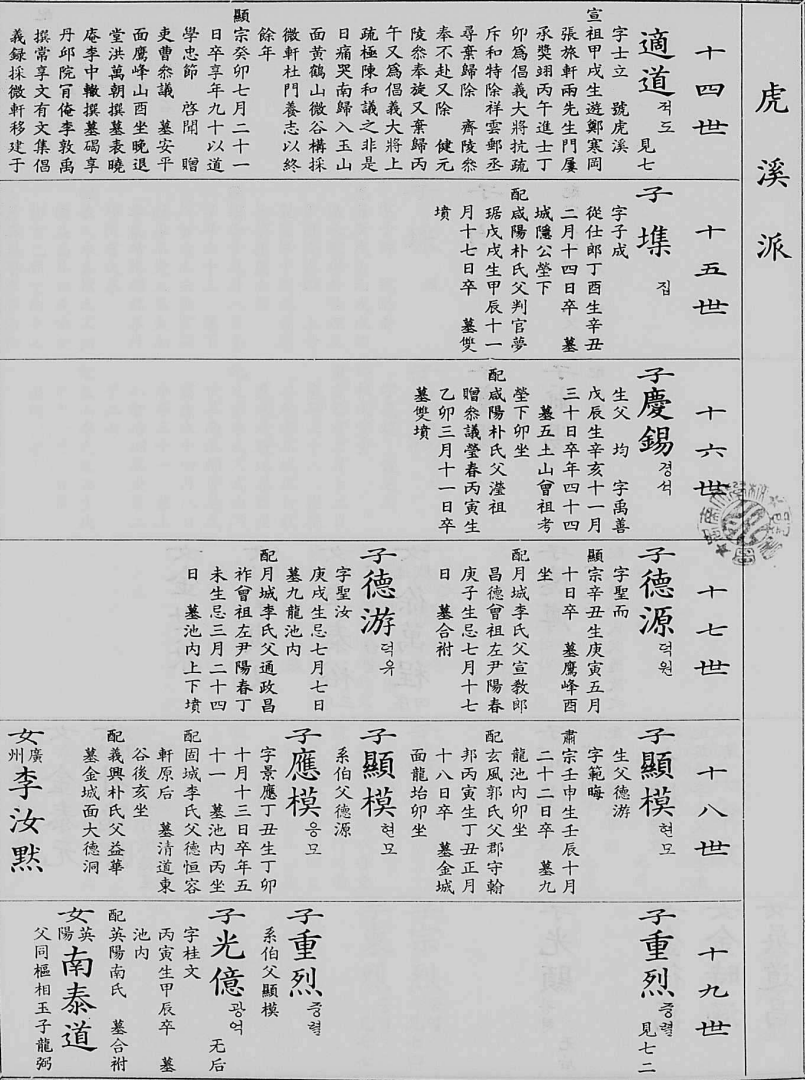 虎溪派
十四世
適道 적도 見七
字士立 號虎溪
宣祖甲戌生遊鄭寒岡
張旅軒兩先生門屢
承奬翊丙午進士丁
卯爲倡義大將抗疏
斥和特除祥雲郵丞
尋棄歸除 齊陵叅
奉不赴又除 健元
陵叅奉旋又棄歸丙
午又爲倡義大將上
疏極陳和議之非是
日痛哭南歸入玉山
面黃鶴山微谷構採
微軒杜門養志以終
餘年
顯宗癸卯七月二十一
日卒享年九十以道
學忠節 啓聞 贈
吏曹叅議 墓安平
面鷹峰山酉坐晚退
堂洪萬朝撰墓表曉
庵李中轍撰墓碣享
丹邱院肯俺李敦禹
撰常享文有文集倡
義錄採微軒移建于
十五世
子㙫 집
字子成
從仕郎丁酉生辛丑
二月十四日卒 墓
城隱公瑩下
配咸陽朴氏父判官夢
琚戊戌生甲辰十一
月十七日卒 墓雙
墳
十六世
子慶錫 경석
生父 均 字禹善
戊辰生辛亥十一月
三十日卒年四十四
墓五土山曾祖考
瑩下卯坐
配咸陽朴氏父瀅祖
贈叅議瑩春丙寅生
乙卯三月十一日卒
墓雙墳
十七世
子德源 덕원
字聖而
顯宗辛丑生庚寅五月
十日卒 墓鷹峰酉
坐
配月城李氏父宣教郎
昌德曾祖左尹陽春
庚子生忌七月十七
日 墓合祔
子德游 덕유
字聖汝
庚戌生忌七月七日
墓九龍池內
配月城李氏父通政昌
祚曾祖左尹陽春丁
未生忌三月二十四
日 墓池內上下墳
十八世
子顯模 현모
生父德游
字範晦
肅宗壬申生壬辰十月
二十二日卒 墓九
龍池內卯坐
配玄風郭氏父郡守翰
邦丙寅生丁丑正月
十八日卒 墓金城
面龍坮卯坐
子顯模 현모
系伯父德源
子應模 응모
字景應丁丑生丁卯
十月十三日卒年五
十一 墓池內丙坐
配固城李氏父德恒容
軒原后 墓清道東
谷後亥坐
配義興朴氏父益華
墓金城面大德洞
女廣州李汝默
十九世
子重烈 중렬 見七二
子重烈 중렬
系伯父顯模
子光億 광억 无后
字桂文
丙寅生甲辰卒 墓
池內
配英陽南氏 墓合祔
女英陽南泰道
父同樞相玉子龍弼